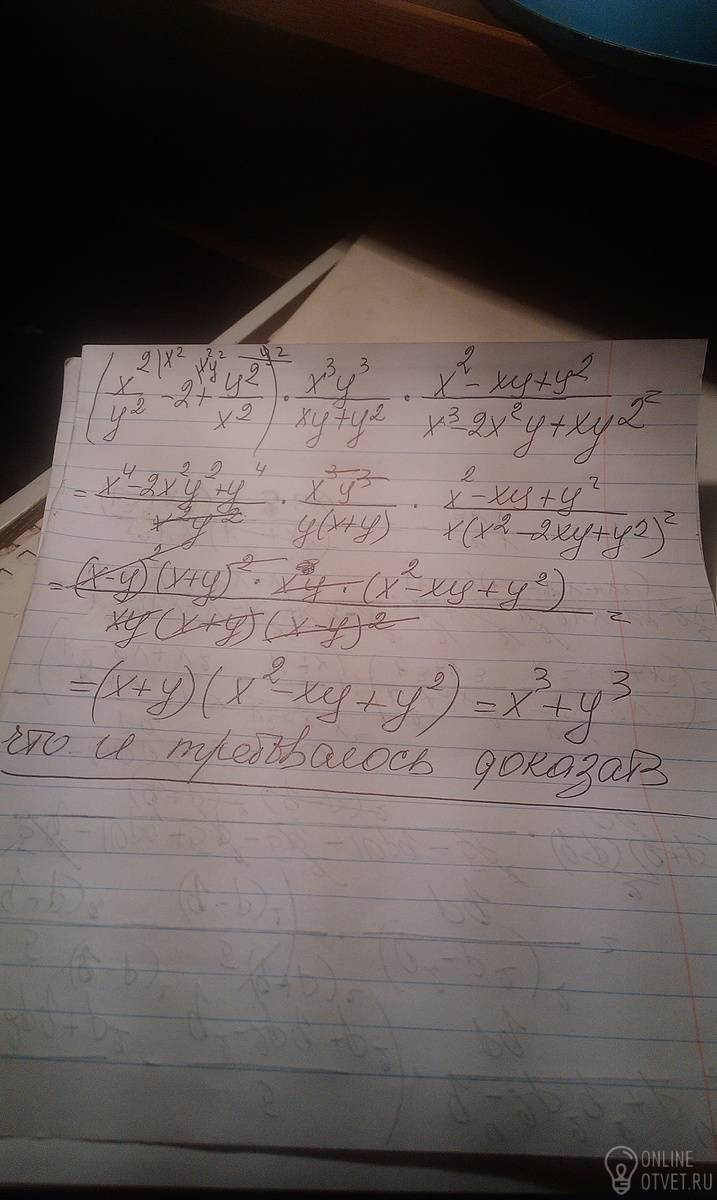 (x²/y² - 2 + y²/x²) · x³y³/(xy+y²) · (x²-xy+y²)/(x³-2x²y+xy2) =
= (x⁴-2x²y²+y⁴)/(x²y²) · x³y³/(y(x+y)) · (x²-xy+y²)/(x(x²-2xy+y2)) =
= ((x-y)²(x+y)² · xy · (x²-xy+y²))/(xy(x+y)(x-y)²) =
= (x+y)(x²-xy+y²) = x³+y³
что и требовалось доказать
ONLINE
OTVET.RU